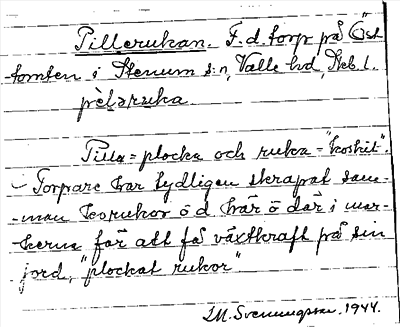 Pillerukan. F. d. torp på Öst
tomten i Stenum s:n, Valle hd, Skb. l.
pèlaruka
Pilla = plocka och ruka = "koskit".
Torpare har tydligen skrapat sam-
-man korukor ö d här ö där i mar-
kerna för att få växtkraft på sin
jord, "plockat rukor"
Svenungsson. 1944.